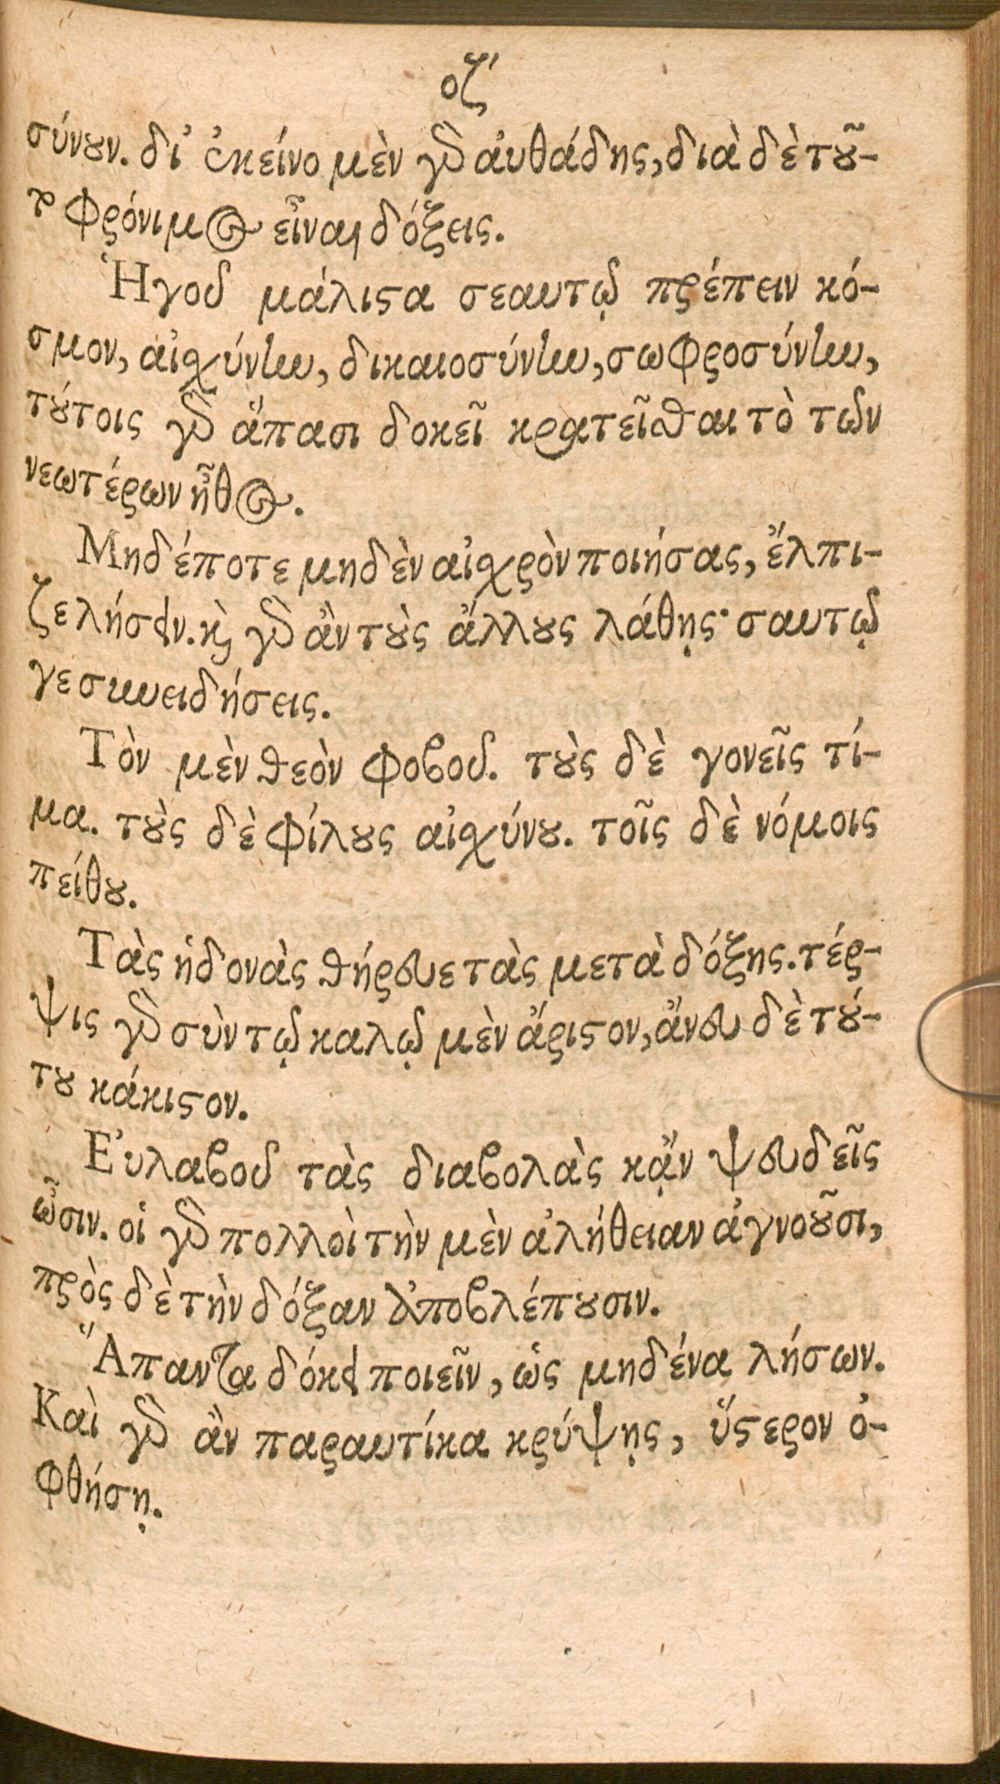 οζʹ
σύνουν. δι᾽ ἐκείνο μὲν γὰρ ἀυθάδης, διὰ δὲ τοῦ-
το φρόνιμος εἶναι δόξεις.
Ἡγοῦ μάλιστα σεαυτῷ πρέπειν κό-
σμον, αἰσχύνην, δικαιοσύνην, σωφροσύνην,
τούτοις γὰρ ἅπασι δοκεῖ κρατεῖσθαι τὸ τῶν
νεωτέρων ἦθος.
Μηδέποτε μηδὲν αἰσχρὸν ποιήσας, ἔλπι-
ζε λήσειν. καὶ γὰρ ἂν τοὺς ἄλλους λάθῃς· σαυτῷ
γε συνειδήσεις.
Τὸν μὲν θεὸν φοβοῦ. τοὺς δὲ γονεῖς τί-
μα. τοὺς δὲ φίλους αἰσχύνου. τοῖς δὲ νόμοις
πείθου.
Τὰς ἡδονὰς θήρευε τὰς μετὰ δόξης. τέρ-
ψις γὰρ σὺν τῷ καλῷ μὲν ἄριστον, ἄνευ δὲ τού-
του κάκιστον.
Εὐλαβοῦ τὰς διαβολὰς κᾂν ψευδεῖς
ὦσιν. οἱ γὰρ πολλοὶ τὴν μὲν ἀλήθειαν ἀγνοοῦσι,
πρὸς δὲ τὴν δόξαν ἀποβλέπουσιν.
Ἅπαντα δόκει ποιεῖν, ὡς μηδένα λήσων.
Καὶ γὰρ ἂν παραυτίκα κρύψῃς, ὕστερον ὀ-
φθήσῃ.